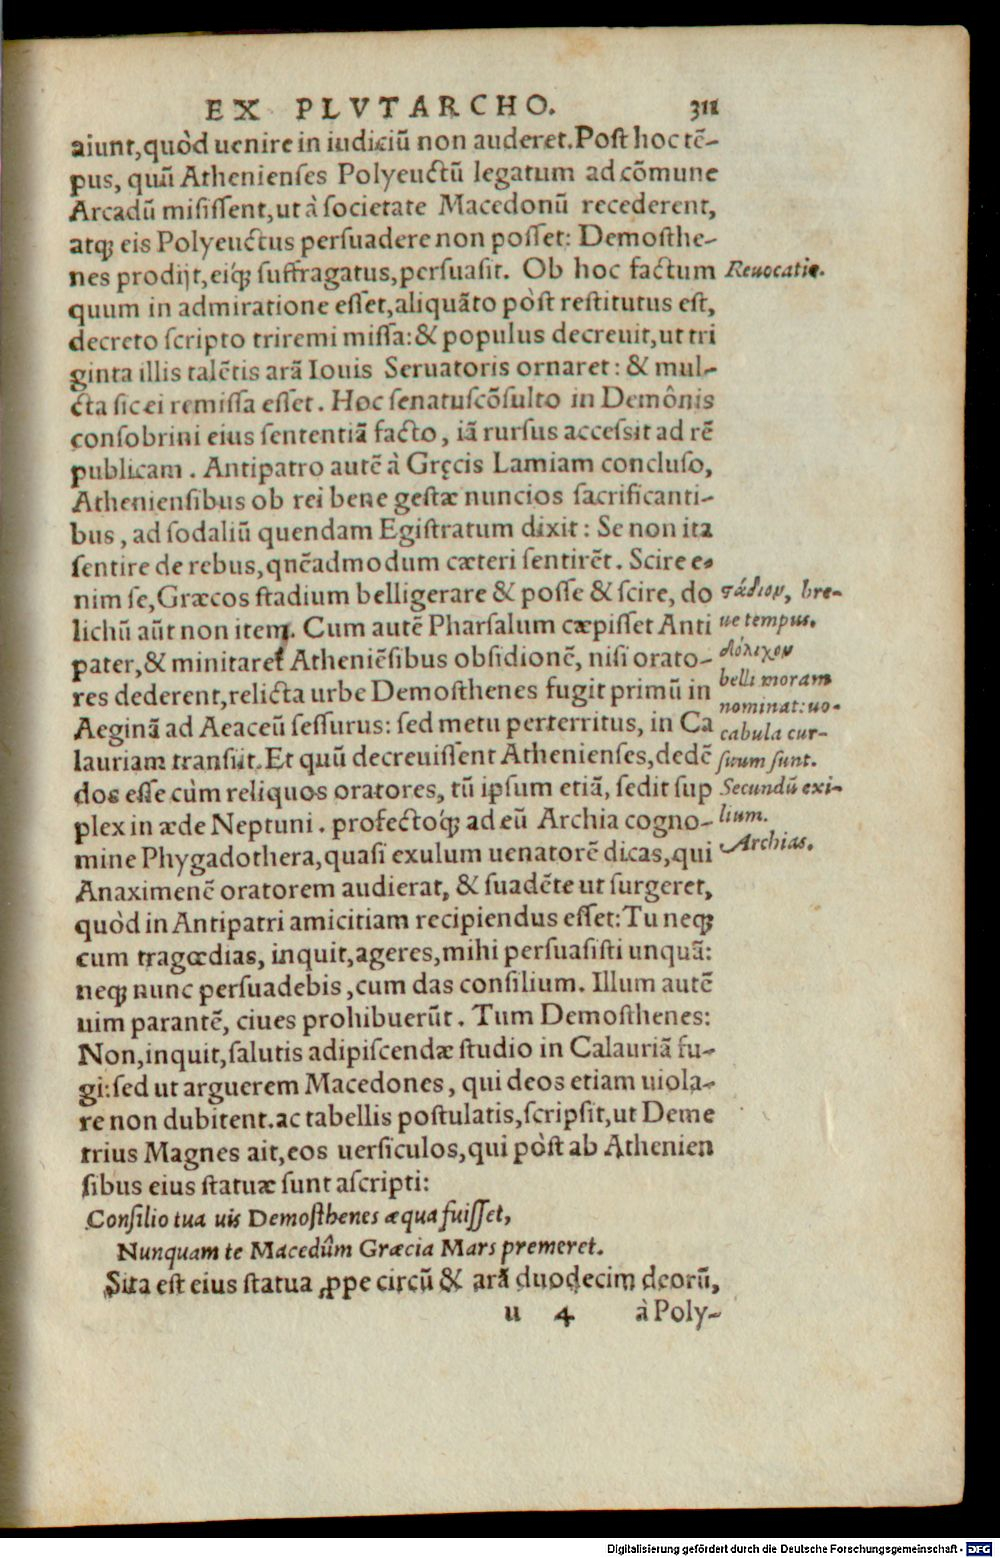 EX PLVTARCHO. 311
aiunt, quòd uenire in iudiciũ non auderet. Post hoc tẽ-
pus, quũ Athenienses Polyeuctũ legatum ad cõmune
Arcadũ misissent, ut à societate Macedonũ recederent,
atq; eis Polyeuctus persuadere non posset: Demosthe-
nes prodijt, eiq; suffragatus, persuasit. Ob hoc factum
Reuocatio.
quum in admiratione esset, aliquãto pòst restitutus est,
decreto scripto triremi missa: & populus decreuit, ut tri
ginta illis talẽtis arã Iouis Seruatoris ornaret: & mul-
cta sic ei remissa esset. Hoc senatuscõsulto in Demônis
consobrini eius sententiã facto, iã rursus accessit ad rẽ
publicam. Antipatro autẽ à Gręcis Lamiam concluso,
Atheniensibus ob rei bene gestæ nuncios sacrificanti-
bus, ad sodaliũ quendam Egistratum dixit: Se non ita
sentire de rebus, quẽadmodum cæteri sentirẽt. Scire e-
nim se, Græcos stadium belligerare & posse & scire, do
στάδιον, bre-
lichũ aũt non item. Cum autẽ Pharsalum cæpisset Anti
ue tempus.
pater, & minitaret Atheniẽsibus obsidionẽ, nisi orato-
δόλιχον
res dederent, relicta urbe Demosthenes fugit primũ in
belli moram
nominat: uo-
Aeginã ad Aeaceũ sessurus: sed metu perterritus, in Ca
cabula cur-
lauriam transiit. Et quũ decreuissent Athenienses, dedẽ
suum sunt.
dos esse cùm reliquos oratores, tũ ipsum etiã, sedit sup
Secundũ exi-
plex in æde Neptuni. profectoq́; ad eũ Archia cogno-
lium.
mine Phygadothera, quasi exulum uenatorẽ dicas, qui
Archias.
Anaximenẽ oratorem audierat, & suadẽte ut surgeret,
quòd in Antipatri amicitiam recipiendus esset: Tu neq;
cum tragœdias, inquit, ageres, mihi persuasisti unquã:
neq; nunc persuadebis, cum das consilium. Illum autẽ
uim parantẽ, ciues prohibuerũt. Tum Demosthenes:
Non, inquit, salutis adipiscendæ studio in Calauriã fu-
gi: sed ut arguerem Macedones, qui deos etiam uiola-
re non dubitent. ac tabellis postulatis, scripsit, ut Deme
trius Magnes ait, eos uersiculos, qui pòst ab Athenien
sibus eius statuæ sunt ascripti:
Consilio tua uis Demosthenes æqua fuisset,
Nunquam te Macedûm Græcia Mars premeret.
Sita est eius statua ꝓpe circũ & arã duodecim deorũ,
u 4 à Poly-
Digitalisierung gefördert durch die Deutsche Forschungsgemeinschaft - DFG